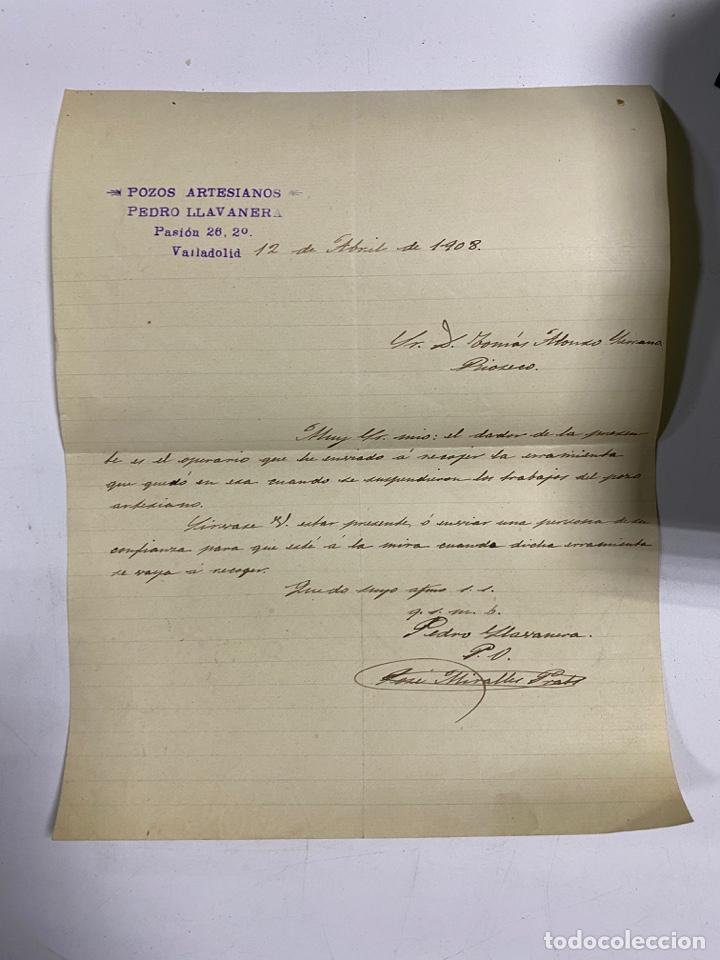 POZOS ARTESIANOS
PEDRO LLAVANERA
Pasión 26, 2º.
Valladolid 12 de Abril de 1908.
Sr. D. Tomás Alonso
Rioseco.
Muy Sr. mio: el dador de la presen
te es el operario que he enviado á recojer la erramienta
que quedó en esa cuando se suspendieron los trabajos del pozo
artesiano.
Sirvase V. estar presente, ó enviar una persona de su
confianza para que esté á la mira cuando dicha erramienta
se vaya á recoger.
Quedo suyo afmo s. s.
q. s. m. b.
Pedro Llavanera.
P.O.
José Miralles Prats
todocoleccion